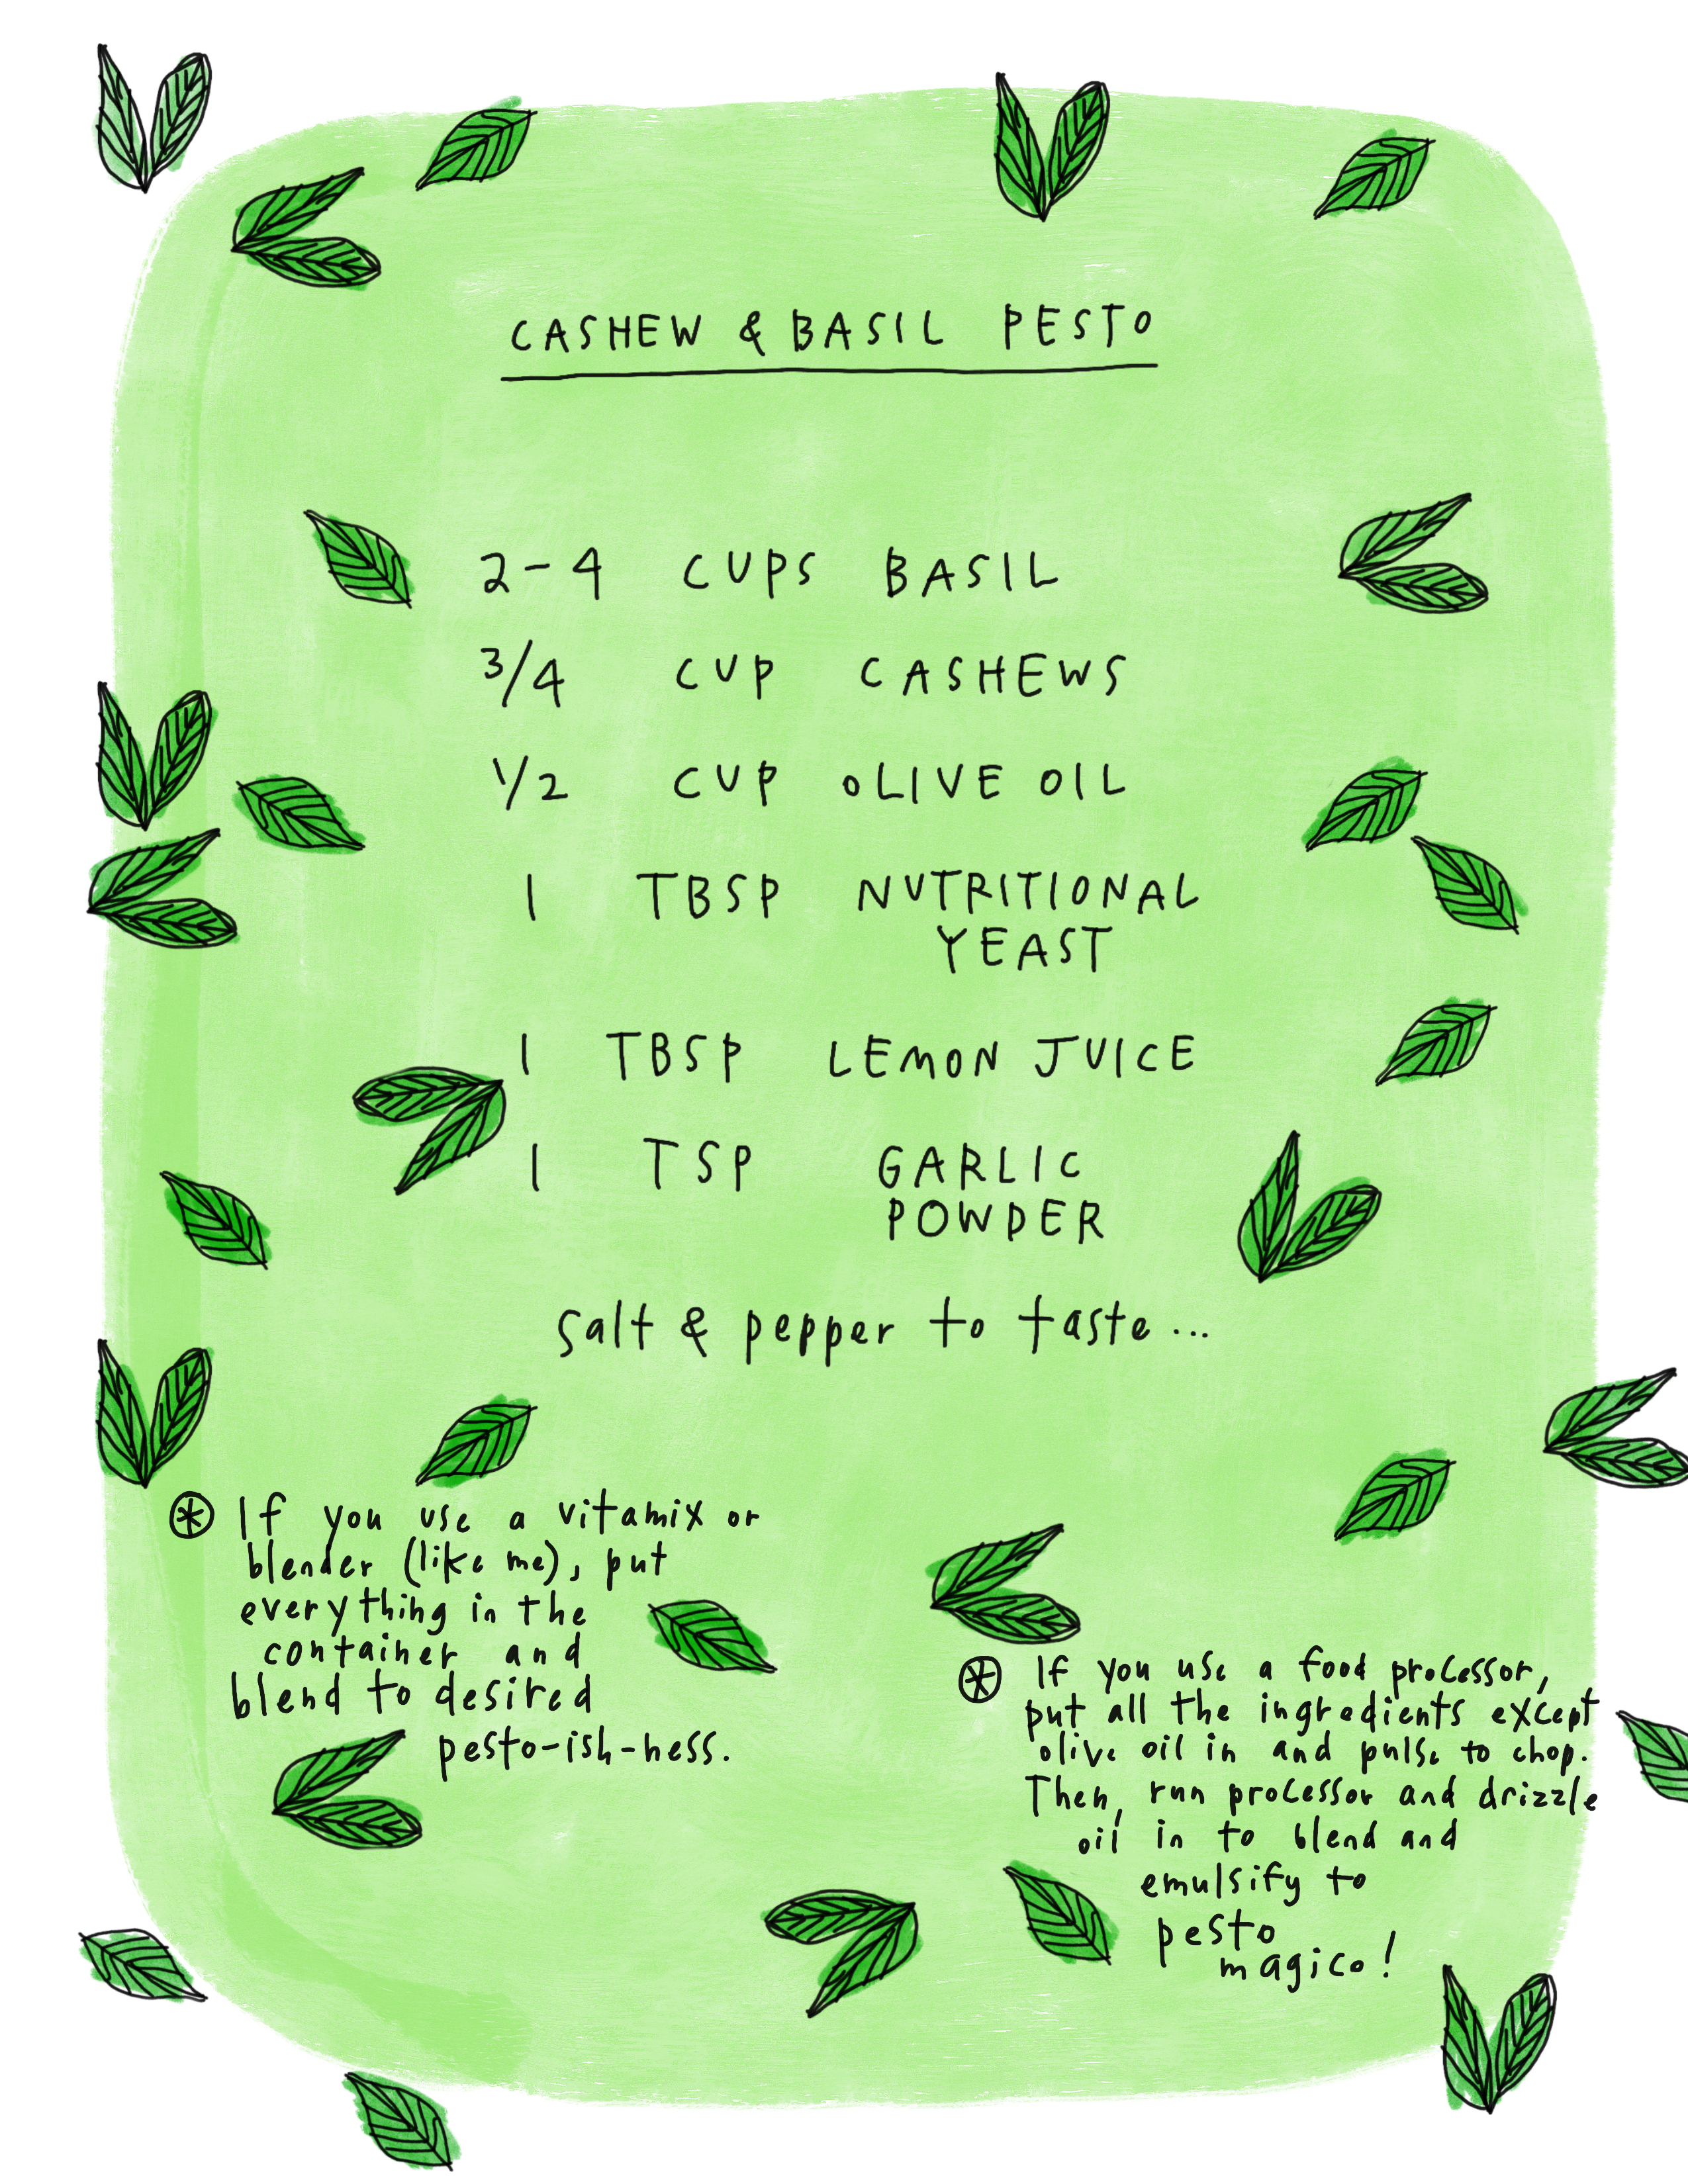 CASHEW & BASIL PESTO
2-4 CUPS BASIL
3/4 CUP CASHEWS
1/2 CUP OLIVE OIL
1 TBSP NUTRITIONAL
YEAST
1 TBSP LEMON JUICE
1 TSP GARLIC
POWDER
salt & pepper to taste...
* If you use a vitamix or
blender (like me), put
everything in the
container and
blend to desired
pesto-ish-ness.
* If you use a food processor,
put all the ingredients except
olive oil in and pulse to chop.
Then, run processor and drizzle
oil in to blend and
emulsify to
pesto
magico!